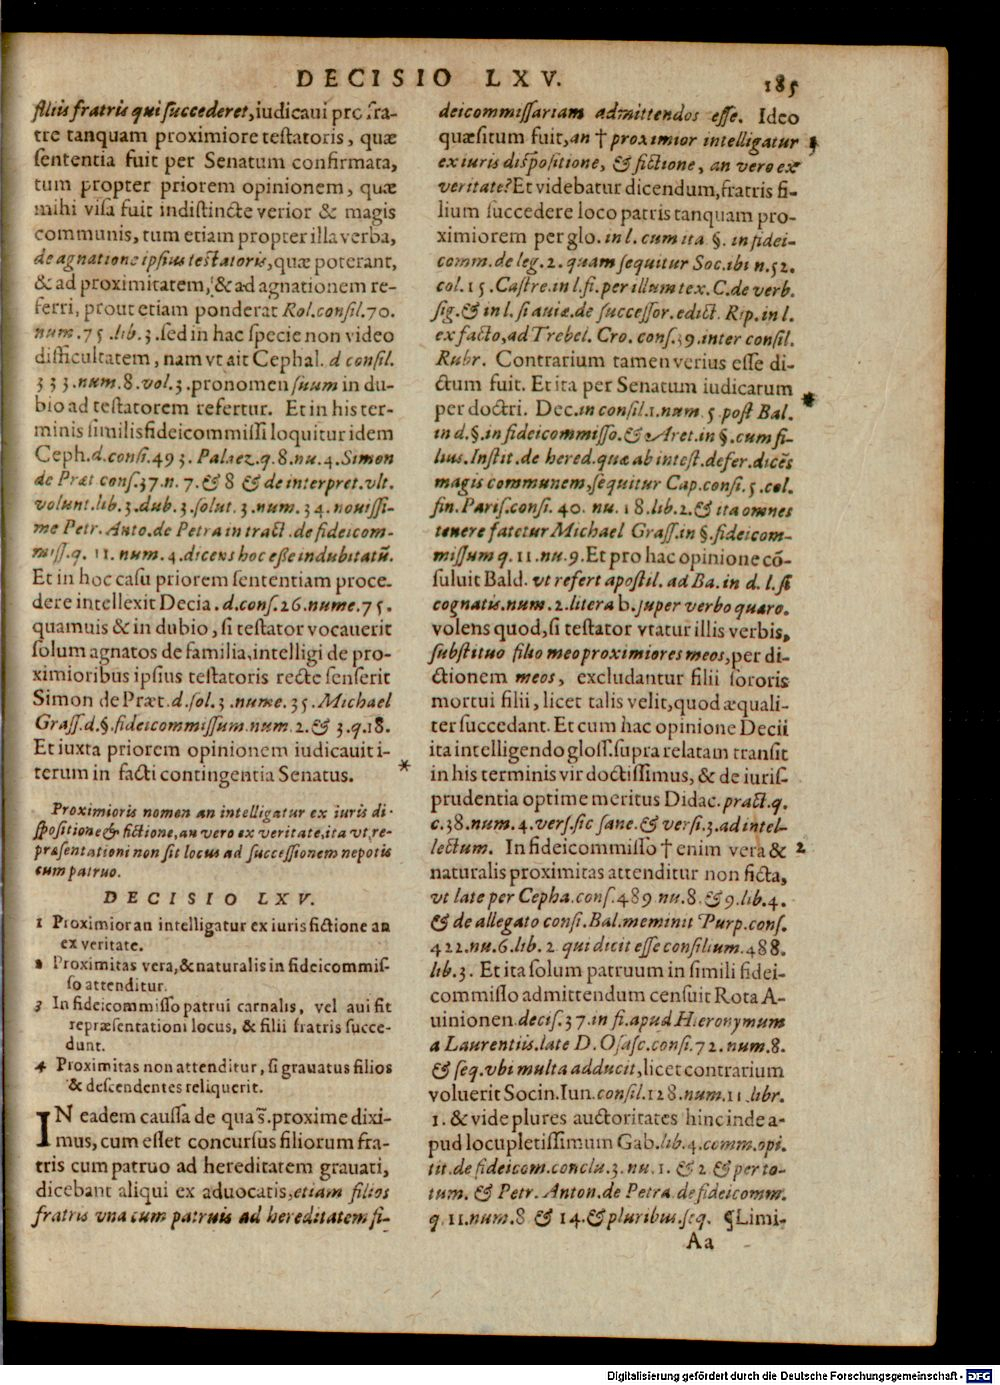 DECISIO LXV. 185
filiis fratris qui succederet, iudicaui pro fra-
tre tanquam proximiore testatoris, quæ
sententia fuit per Senatum confirmata,
tum propter priorem opinionem, quæ
mihi visa fuit indistincte verior & magis
communis, tum etiam propter illa verba,
de agnatione ipsius testatoris, quæ poterant,
& ad proximitatem, & ad agnationem re-
ferri, prout etiam ponderat Rol. consil. 70.
num. 75. lib. 3. sed in hac specie non video
difficultatem, nam vt ait Cephal. d consil.
333. num. 8. vol. 3. pronomen suum in du-
bio ad testatorem refertur. Et in his ter-
minis similis fideicommissi loquitur idem
Ceph. d. consi. 493. Palaez. q. 8. nu. 4. Simon
de Præt cons. 37. n. 7. & 8 & de interpret. vlt.
volunt. lib. 3. dub. 3. solut. 3. num. 34. nouissi-
me Petr. Anto. de Petra in tract. de fideicom-
miss. q. 11. num. 4. dicens hoc esse indubitatū.
Et in hoc casu priorem sententiam proce-
dere intellexit Decia. d. cons. 26. nume. 75.
quamuis & in dubio, si testator vocauerit
solum agnatos de familia, intelligi de pro-
ximioribus ipsius testatoris recte senserit
Simon de Præt. d. sol. 3. nume. 35. Michael
Grass. d. §. fideicommissum num. 2. & 3. q. 18.
Et iuxta priorem opinionem iudicauit i-
terum in facti contingentia Senatus. *
Proximioris nomen an intelligatur ex iuris di-
spositione & fictione, an vero ex veritate, ita vt re-
præsentationi non sit locus ad successionem nepotis
cum patruo.
DECISIO LXV.
1 Proximior an intelligatur ex iuris fictione an
ex veritate.
2 Proximitas vera, & naturalis in fideicommis-
so attenditur.
3 In fideicommisso patrui carnalis, vel aui fit
repræsentationi locus, & filii fratris succe-
dunt.
4 Proximitas non attenditur, si grauatus filios
& descendentes reliquerit.
IN eadem caussa de qua s̄. proxime dixi-
mus, cum esset concursus filiorum fra-
tris cum patruo ad hereditatem grauati,
dicebant aliqui ex aduocatis, etiam filios
fratris vna cum patruis ad hereditatem fi-
deicommissariam admittendos esse. Ideo
quæsitum fuit, an † proximior intelligatur 1
ex iuris dispositione, & fictione, an vero ex
veritate? Et videbatur dicendum, fratris fi-
lium succedere loco patris tanquam pro-
ximiorem per glo. in l. cum ita §. in fidei-
comm. de leg. 2. quam sequitur Soc. ibi n. 52.
col. 15. Castre. in l. fi. per illum tex. C. de verb.
sig. & in l. si auiæ. de successor. edict. Rip. in l.
ex facto, ad Trebel. Cro. cons. 39. inter consil.
Rubr. Contrarium tamen verius esse di-
ctum fuit. Et ita per Senatum iudicatum *
per doctri. Dec. in consil. 1. num. 5 post Bal.
in d. §. in fideicommisso. & Aret. in §. cum fi-
lius. Instit. de hered. quæ ab intest. defer. dicēs
magis communem, sequitur Cap. consi. 5. col.
fin. Paris. consi. 40. nu. 18. lib. 2. & ita omnes
tenere fatetur Michael Grass. in §. fideicom-
missum q. 11. nu. 9. Et pro hac opinione cō-
suluit Bald. vt refert apostil. ad Ba. in d. l. si
cognatis. num. 2. litera b. super verbo quæro.
volens quod, si testator vtatur illis verbis,
substituo filio meo proximiores meos, per di-
ctionem meos, excludantur filii sororis
mortui filii, licet talis velit, quod æquali-
ter succedant. Et cum hac opinione Decii
ita intelligendo gloss. supra relatam transit
in his terminis vir doctissimus, & de iuris-
prudentia optime meritus Didac. pract. q.
c. 38. num. 4. vers. sic sane. & versi. 3. ad intel-
lectum. In fideicommisso † enim vera & 2
naturalis proximitas attenditur non ficta,
vt late per Cepha. cons. 489 nu. 8. & 9. lib. 4.
& de allegato consi. Bal. meminit Purp. cons.
422. nu. 6. lib. 2 qui dicit esse consilium. 488.
lib. 3. Et ita solum patruum in simili fidei-
commisso admittendum censuit Rota A-
uinionen. decis. 37. in fi. apud Hieronymum
a Laurentiis. late D. Osasc. consi. 72. num. 8.
& seq. vbi multa adducit, licet contrarium
voluerit Socin. Iun. consil. 128. num. 11. libr.
1. & vide plures auctoritates hinc inde a-
pud locupletissimum Gab. lib. 4. comm. opi.
tit. de fideicom. conclu. 3. nu. 1. & 2 & per to-
tum. & Petr. Anton. de Petra de fideicomm.
q. 11. num. 8 & 14. & pluribus seq. ¶ Limi-
Aa
Digitalisierung gefördert durch die Deutsche Forschungsgemeinschaft - DFG